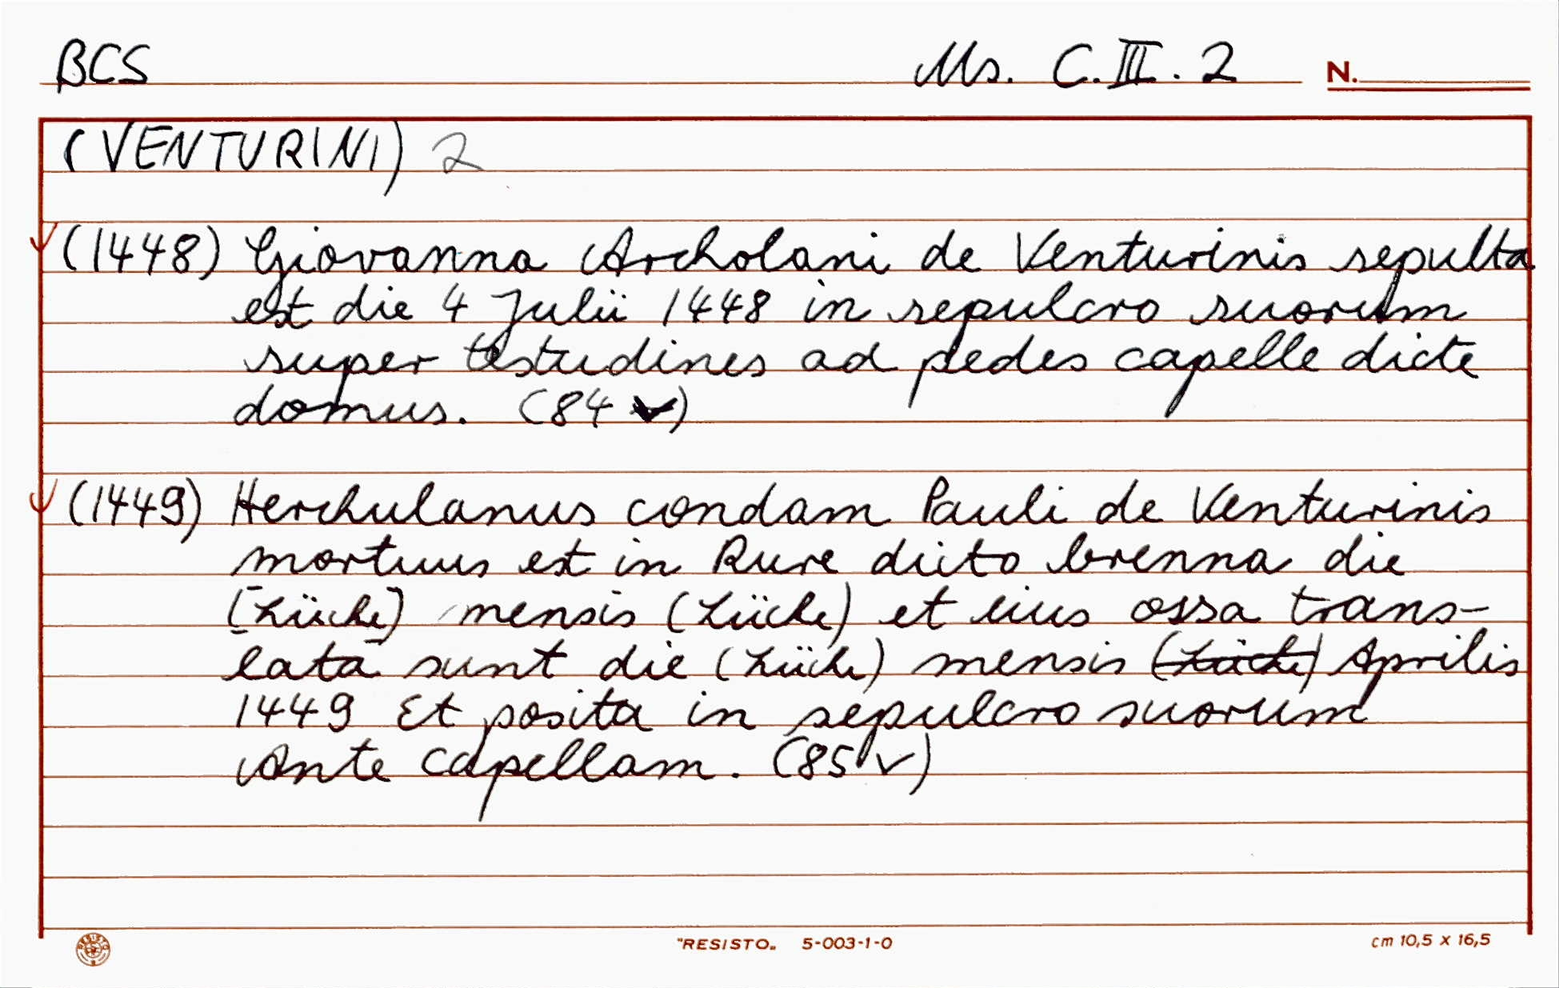 BCS Ms. C.III.2 N.
(VENTURINI) 2
(1448) Giovanna Archolani de Venturinis sepulta
est die 4 Julii 1448 in sepulcro suorum
super testudines ad pedes capelle dicte
domus. (84 v)
(1449) Herchulanus condam Pauli de Venturinis
mortuus est in Rure dicto brenna die
[Lücke] mensis (Lücke) et eius ossa trans-
lata sunt die (Lücke) mensis (Lücke) Aprilis
1449 Et posita in sepulcro suorum
Ante capellam. (85 v)
RESISTO "RESISTO„ 5-003-1-0 cm 10,5 x 16,5